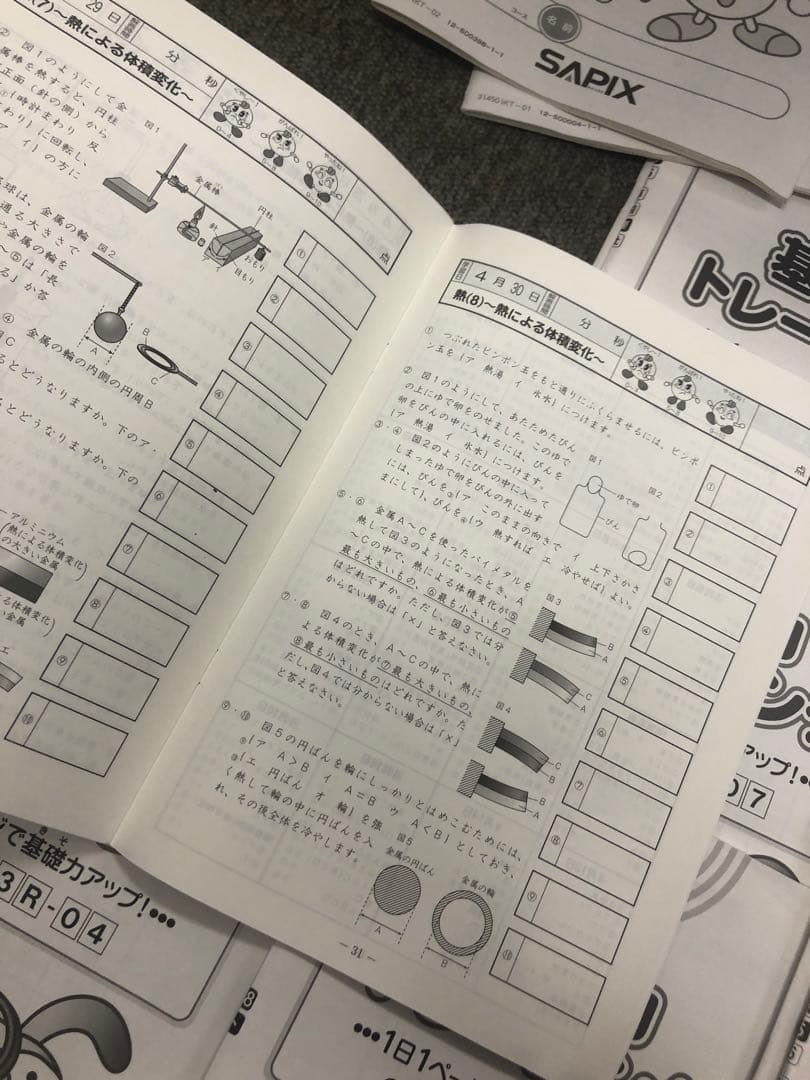 29日
分 秒
(7)〜熱による体積変化〜
くやしー!
がんばれ!
やったね!
点
② 図1のようにして金
属棒を熱すると、円柱
正面(針の側)から
(時計まわり 反
わり)に回転し、
ア イ)の方に
図1
金属棒
針
円柱
おもり
目もり
球は、金属の輪
通る大きさで
や金属の輪を
〜⑤は「長
る」か答
図2
A
B
C
④ 金属の輪の内側の円周B
図C
るとどうなりますか。下のア・
るとどうなりますか。下の
アルミニウム
(熱による体積変化)
の大きい金属
エ
①
②
③
④
⑤
⑥
⑦
⑧
⑨
⑩
4月30日
分 秒
熱(8)〜熱による体積変化〜
くやしー!
がんばれ!
やったね!
点
① つぶれたピンポン玉をもと通りにふくらませるには、ピンポ
ン玉を(ア 熱湯 イ 氷水)につけます。
② 図1のようにして、あたためたびん
の上にゆで卵をのせました。このゆで
卵をびんの中に入れるには、びんを
(ア 熱湯 イ 氷水)につけます。
③・④ 図2のようにびんの中に入って
しまったゆで卵をびんの外に出す
には、びんを③(ア このままの向きで イ 上下さかさ
まにして)、びんを④(ウ 熱すれば エ 冷やせば)よい。
図1
ゆで卵
びん
図2
⑤・⑥ 金属A〜Cを使ったバイメタルを
熱して図3のようになったとき、A
〜Cの中で、熱による体積変化が⑤
最も大きいもの、⑥最も小さいもの
はどれですか。ただし、図3では分
からない場合は「×」と答えなさい。
図3
B
A
C
A
⑦・⑧ 図4のとき、A〜Cの中で、熱に
よる体積変化が⑦最も大きいもの、
⑧最も小さいものはどれですか。た
だし、図4では分からない場合は「×」
と答えなさい。
図4
C
B
B
A
⑨・⑩ 図5の円ばんを輪にしっかりとはめこむためには、
⑨(ア A>B イ A=B ウ A<B)としておき、
⑩(エ 円ばん オ 輪)を強
く熱して輪の中に円ばんを入
れ、その後全体を冷やします。
図5
金属の円ばん
金属の輪
A
B
①
②
③
④
⑤
⑥
⑦
⑧
⑨
⑩
— 31 —
コース
名前
SAPIX
基
トレー
07
アップ!•••
で基礎力アップ!•••
3R-04
•••1日1ペー